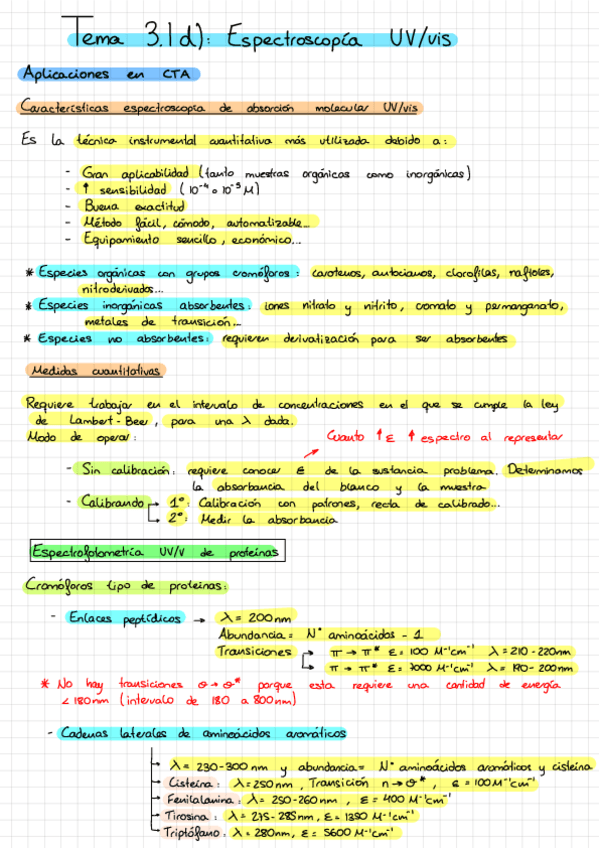 Tema 3.1d): Espectroscopía UV/vis
Aplicaciones en CTA
Características espectroscopía de absorción molecular UV/vis
Es la técnica instrumental cuantitativa más utilizada debido a:
- Gran aplicabilidad (tanto muestras orgánicas como inorgánicas)
- ↑ sensibilidad (10⁻⁴ o 10⁻⁵ M)
- Buena exactitud
- Método fácil, cómodo, automatizable...
- Equipamiento sencillo, económico...
* Especies orgánicas con grupos cromóforos: carotenos, antocianos, clorofilas, naftoles,
nitroderivados...
* Especies inorgánicas absorbentes: iones nitrato y nitrito, cromato y permanganato,
metales de transición...
* Especies no absorbentes: requieren derivatización para ser absorbentes
Medidas cuantitativas
Requiere trabajar en el intervalo de concentraciones en el que se cumple la ley
de Lambert-Beer, para una λ dada.
Modo de operar:
Cuanto ↑ ε ↑ espectro al representar
- Sin calibración: requiere conocer ε de la sustancia problema. Determinamos
la absorbancia del blanco y la muestra
- Calibrando → 1º: Calibración con patrones, recta de calibrado...
→ 2º: Medir la absorbancia
Espectrofotometría UV/V de proteínas
Cromóforos tipo de proteínas:
- Enlaces peptídicos → λ = 200nm
Abundancia = Nº aminoácidos - 1
Transiciones → π → π* ε = 100 M⁻¹cm⁻¹ λ = 210-220nm
→ π → π* ε = 7000 M⁻¹cm⁻¹ λ = 190-200nm
* No hay transiciones σ → σ* porque esta requiere una cantidad de energía
< 180nm (intervalo de 180 a 800nm)
- Cadenas laterales de aminoácidos aromáticos
→ λ = 230-300nm y abundancia = Nº aminoácidos aromáticos y cisteína
→ Cisteína: λ = 250nm, Transición n → σ*, ε = 100 M⁻¹cm⁻¹
→ Fenilalanina: λ = 250-260nm, ε = 400 M⁻¹cm⁻¹
→ Tirosina: λ = 275-285nm, ε = 1350 M⁻¹cm⁻¹
→ Triptófano: λ = 280nm, ε = 5600 M⁻¹cm⁻¹